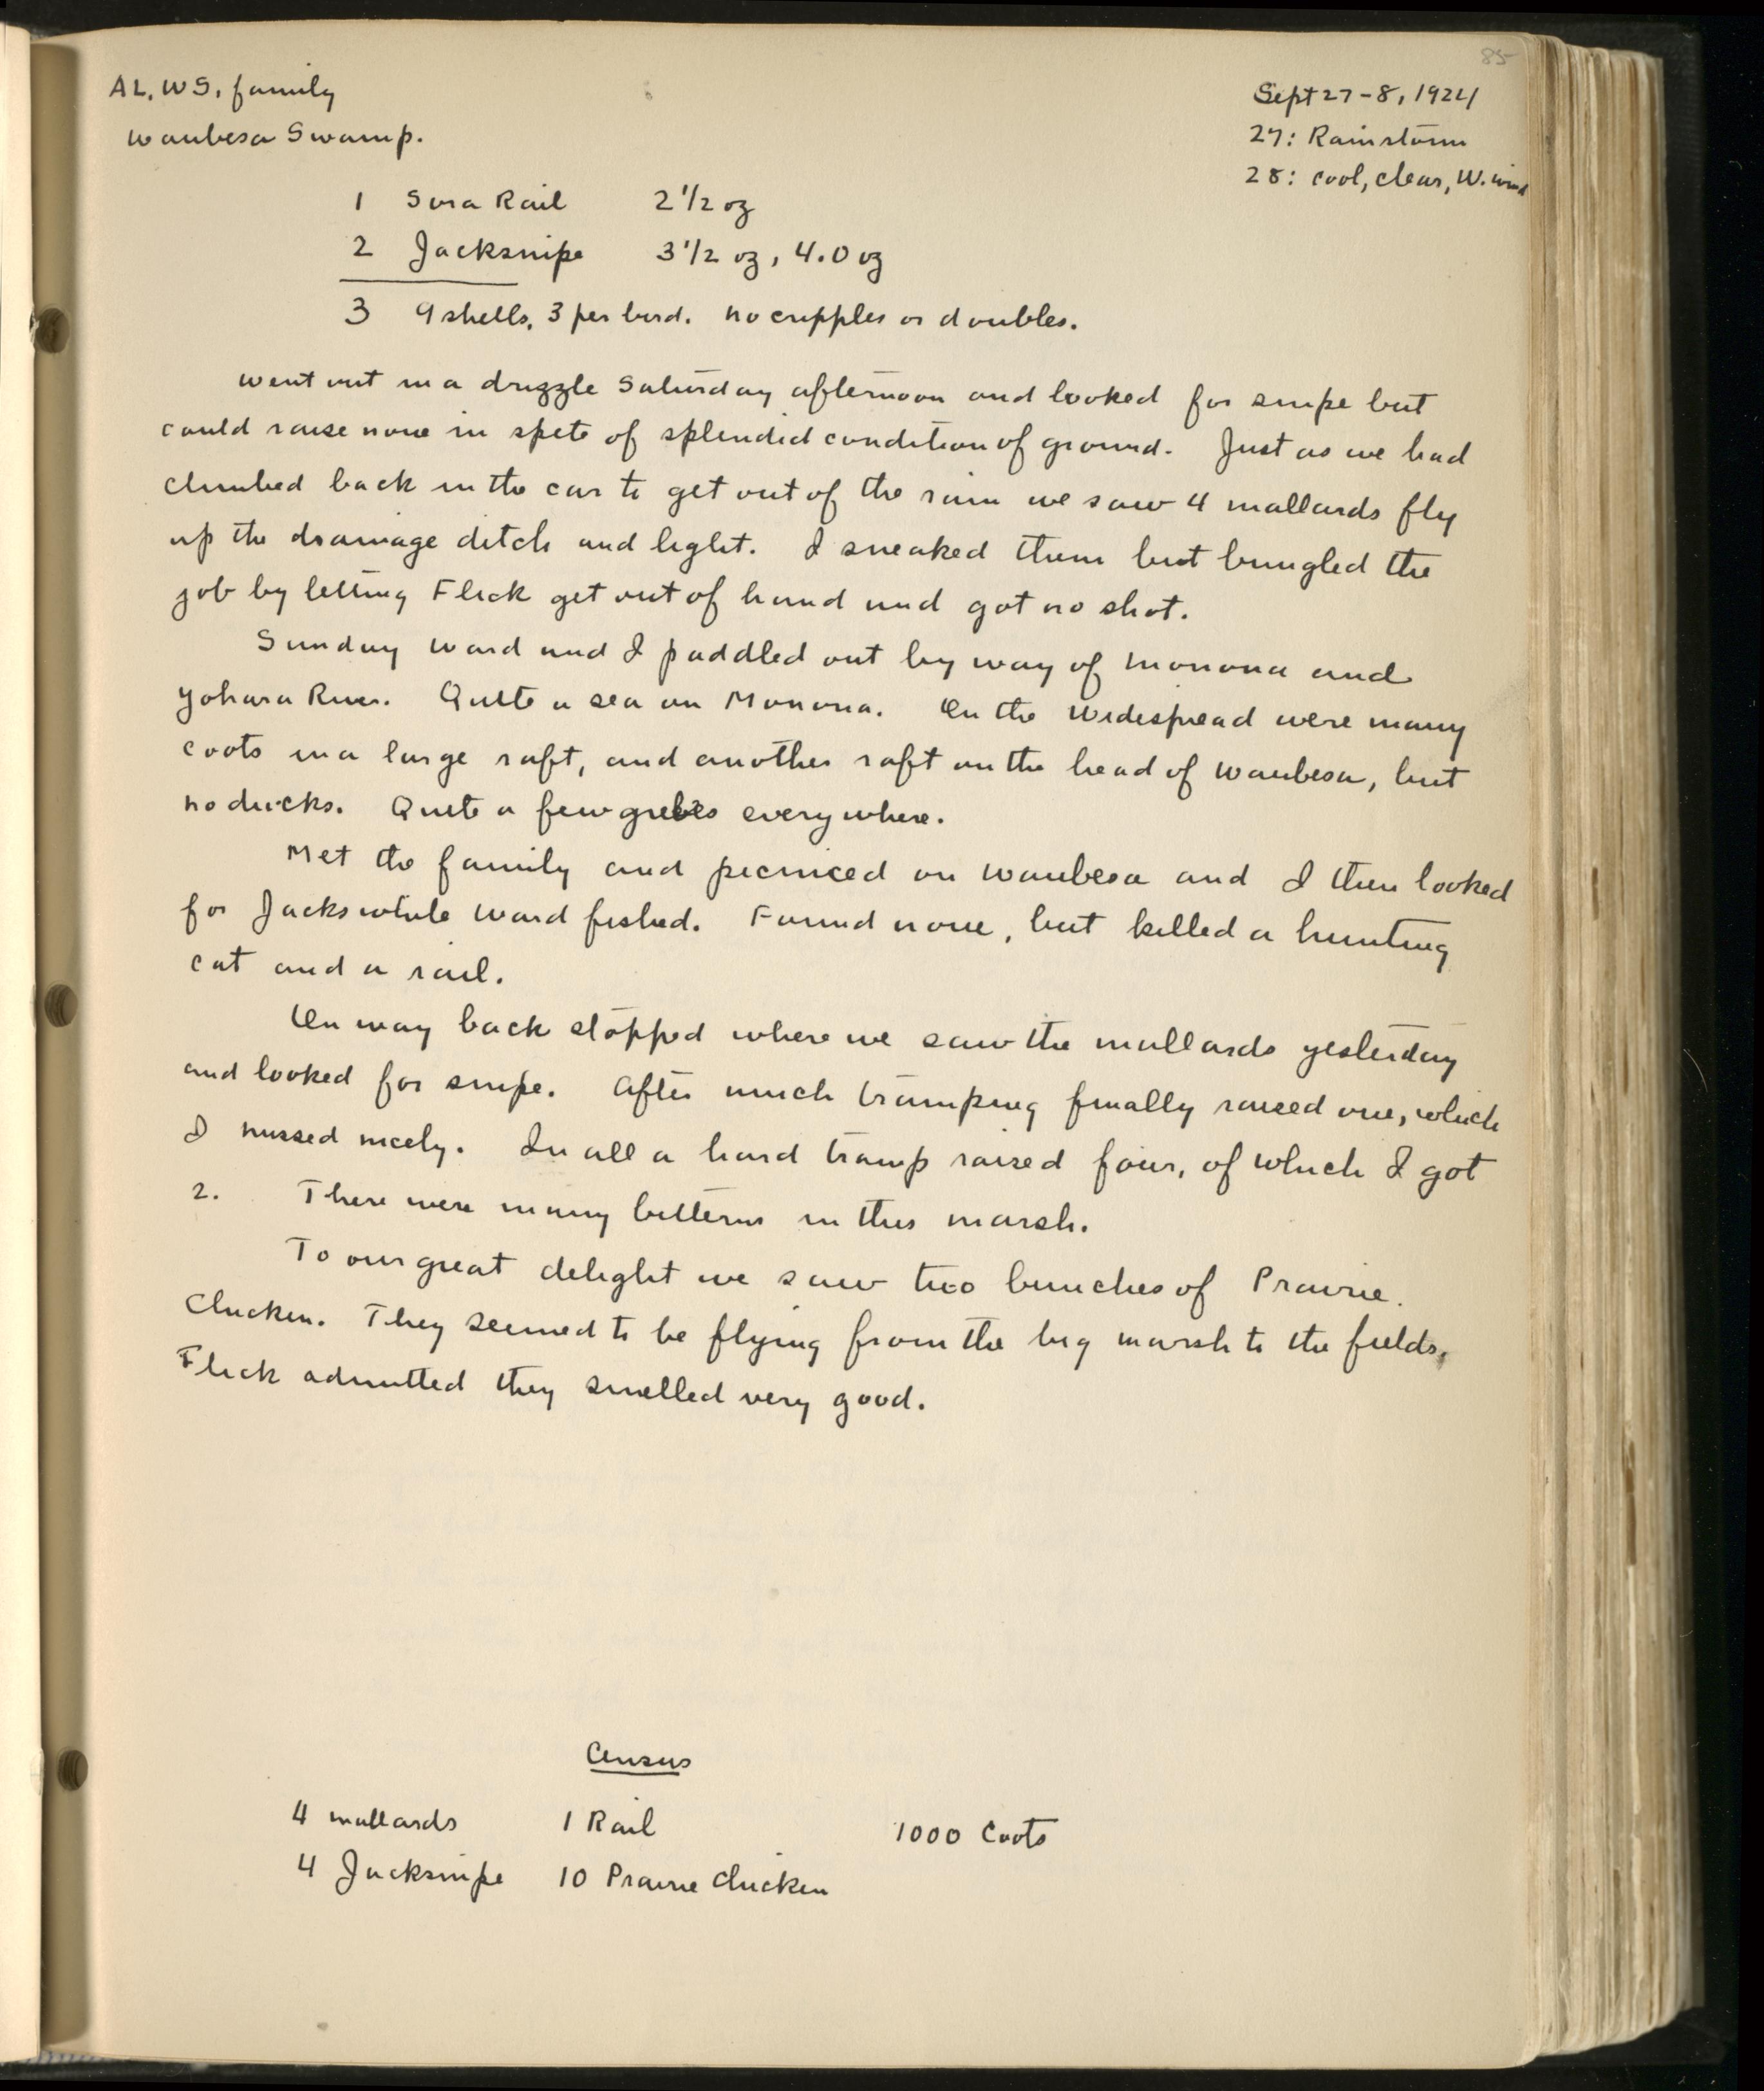 85
AL, WS, family
Waubesa Swamp.
Sept 27-8, 1924
27: Rainstorm
28: cool, clear, W. wind
1 Sora Rail 2 1/2 oz
2 Jacksnipe 3 1/2 oz, 4.0 oz
3 9 shells, 3 per bird. no cripples or doubles.
Went out in a drizzle Saturday afternoon and looked for snipe but
could raise none in spite of splendid condition of ground. Just as we had
climbed back in the car to get out of the rain we saw 4 mallards fly
up the drainage ditch and light. I sneaked them but bungled the
job by letting Flick get out of hand and got no shot.
Sunday Ward and I paddled out by way of Monona and
Yahara River. Quite a sea on Monona. On the Widespread were many
coots in a large raft, and another raft on the head of Waubesa, but
no ducks. Quite a few grebes everywhere.
Met the family and picniced on Waubesa and I then looked
for Jacks while Ward fished. Found none, but killed a hunting
cat and a rail.
On way back stopped where we saw the mallards yesterday
and looked for snipe. After much tramping finally raised one, which
I missed nicely. In all a hard tramp raised four, of which I got
2. There were many bitterns in this marsh.
To our great delight we saw two bunches of Prairie
Chicken. They seemed to be flying from the big marsh to the fields,
Flick admitted they smelled very good.
Census
4 mallards 1 Rail 1000 Coots
4 Jacksnipe 10 Prairie Chicken